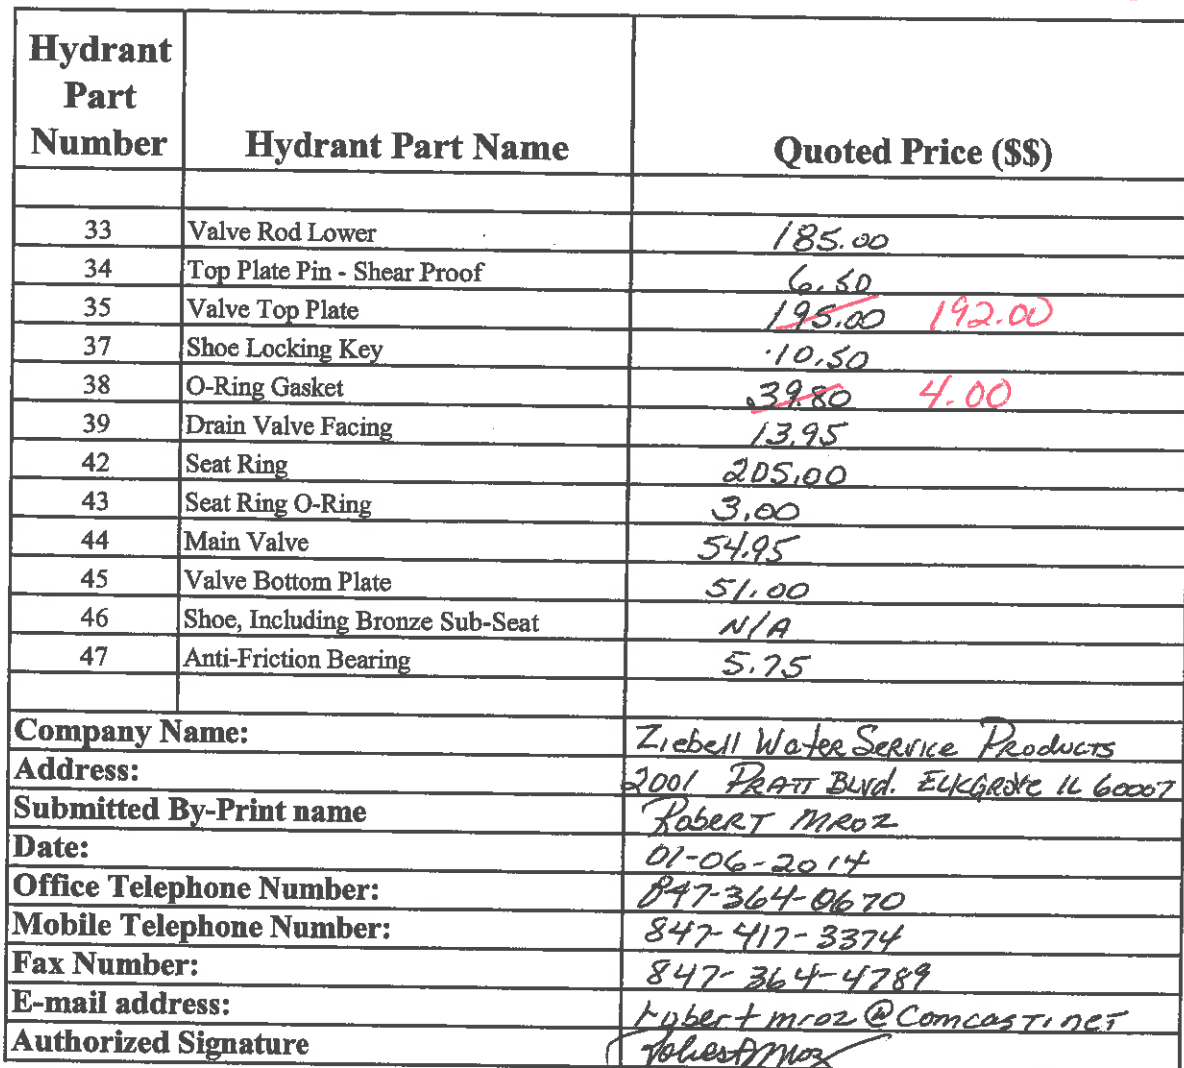 Hydrant
Part
Number Hydrant Part Name Quoted Price ($$)
33 Valve Rod Lower 185.00
34 Top Plate Pin - Shear Proof 6.50
35 Valve Top Plate 195.00 192.00
37 Shoe Locking Key 10.50
38 O-Ring Gasket 39.80 4.00
39 Drain Valve Facing 13.95
42 Seat Ring 205.00
43 Seat Ring O-Ring 3.00
44 Main Valve 54.95
45 Valve Bottom Plate 51.00
46 Shoe, Including Bronze Sub-Seat N/A
47 Anti-Friction Bearing 5.75
Company Name: Ziebell Water Service Products
Address: 2001 Pratt Blvd. Elk Grove IL 60007
Submitted By-Print name Robert Mroz
Date: 01-06-2014
Office Telephone Number: 847-364-0670
Mobile Telephone Number: 847-417-3374
Fax Number: 847-364-4789
E-mail address: robertmroz@comcast.net
Authorized Signature Robert Mroz